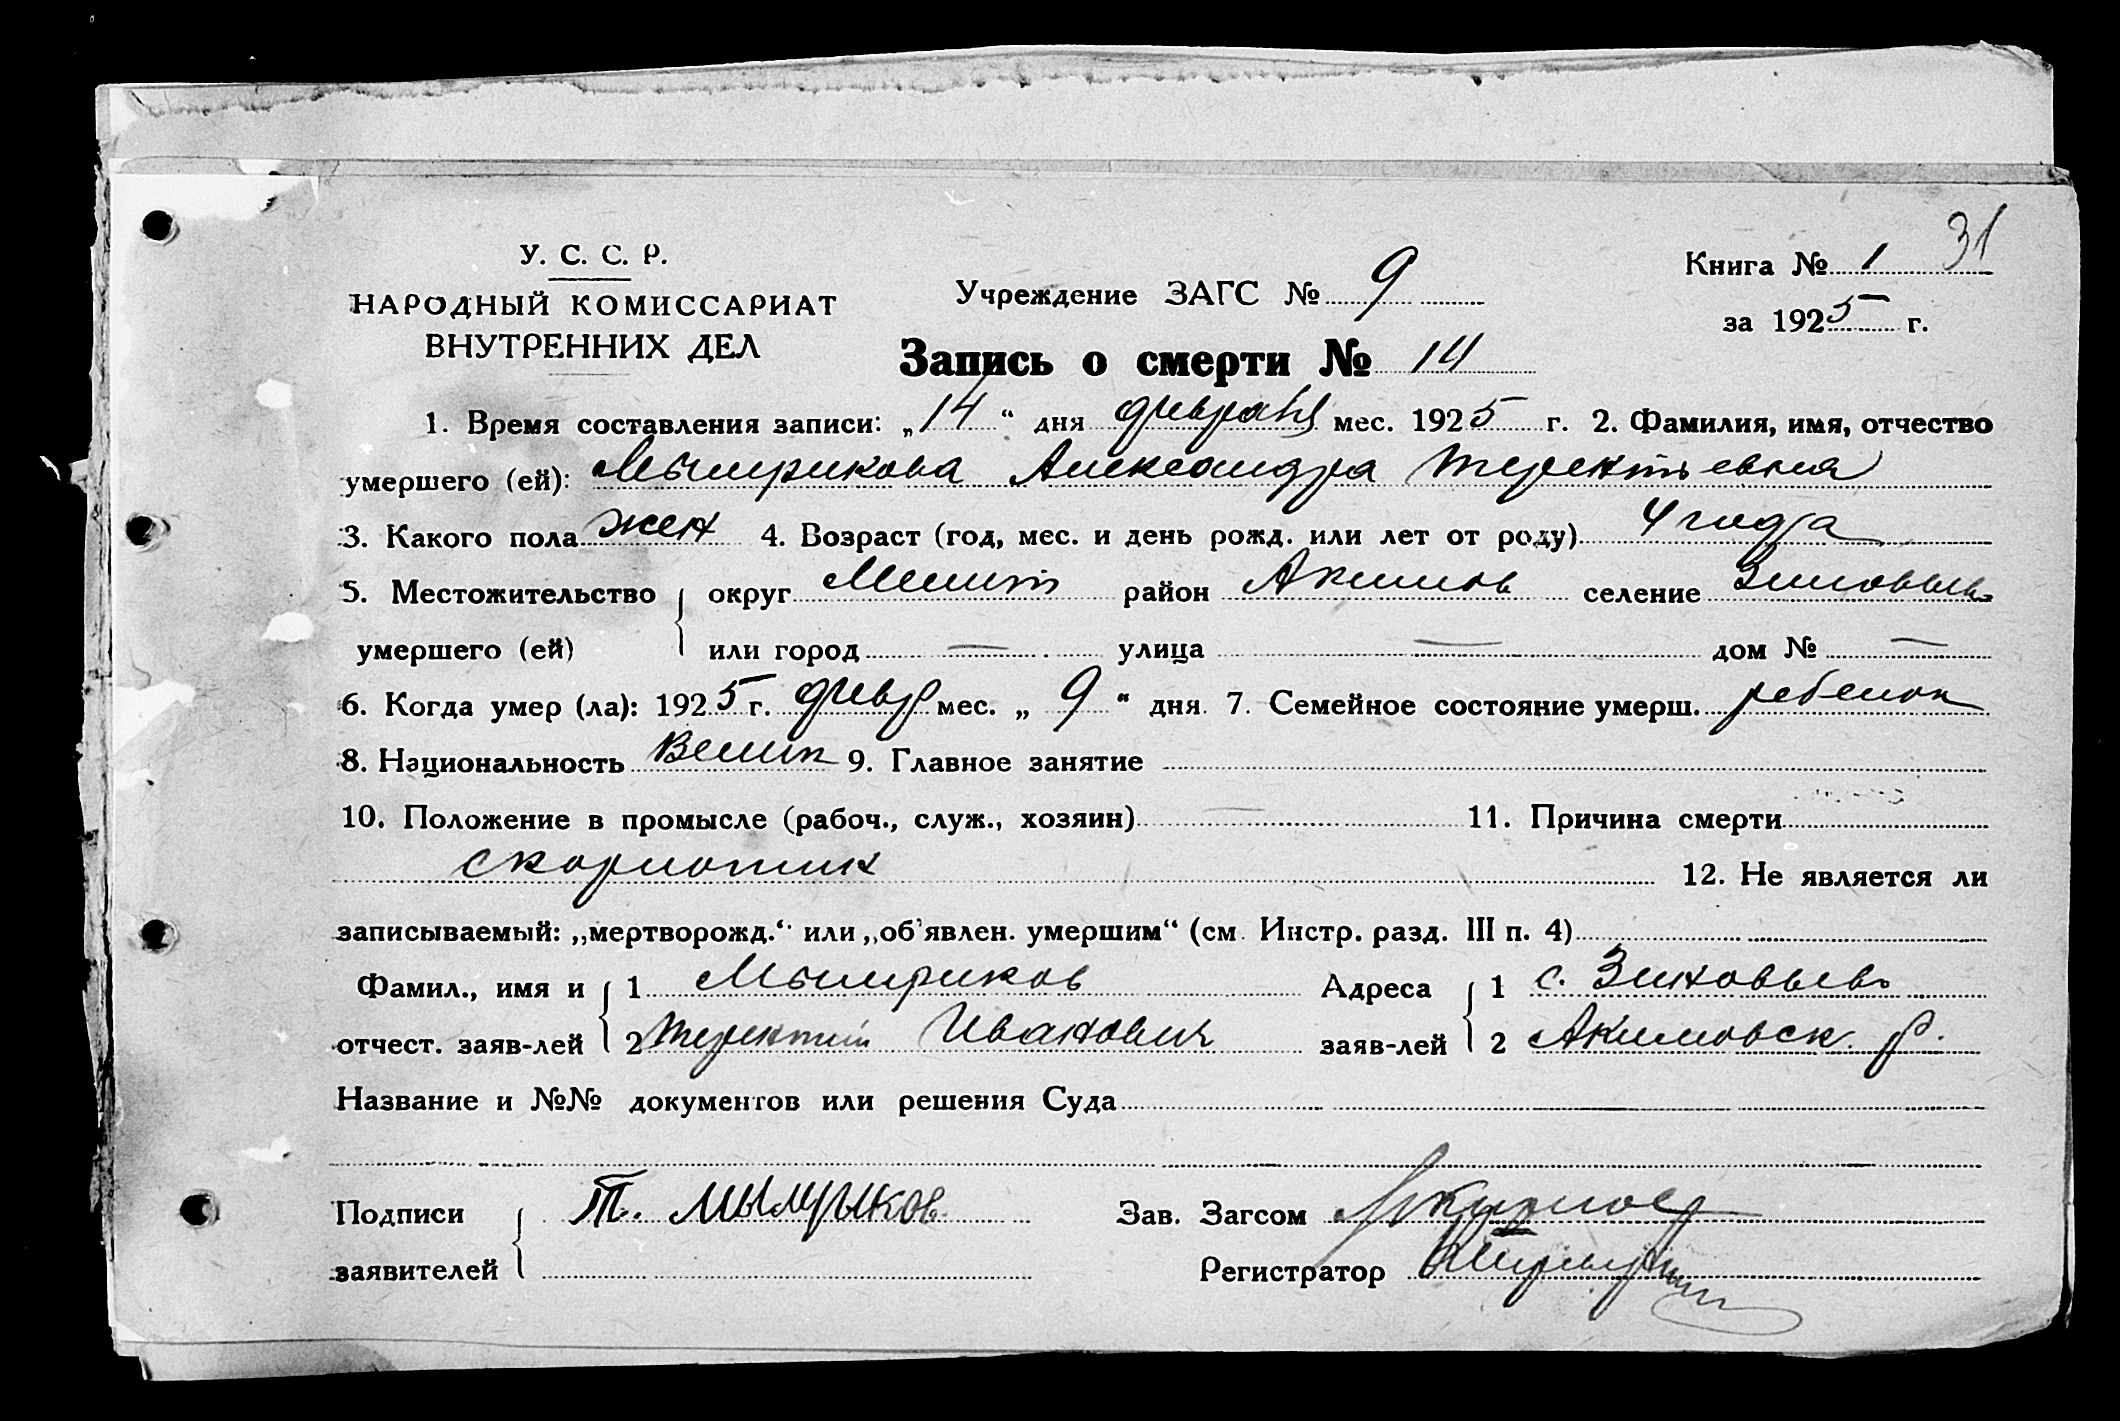 31
У. С. С. Р.
НАРОДНЫЙ КОМИССАРИАТ
ВНУТРЕННИХ ДЕЛ
Учреждение ЗАГС № 9
Книга № 1
за 1925 г.
Запись о смерти № 14
1. Время составления записи: „14“ дня февраля мес. 1925 г. 2. Фамилия, имя, отчество
умершего (ей): Мымрикова Александра Терентьевна
3. Какого пола жен 4. Возраст (год, мес. и день рожд. или лет от роду) 4 года
5. Местожительство округ Мелит район Акимов селение Зиновьев
умершего (ей) или город — улица — дом № —
6. Когда умер (ла): 1925 г. февр мес. „9“ дня 7. Семейное состояние умерш. ребенок
8. Национальность Велик 9. Главное занятие
10. Положение в промысле (рабоч., служ., хозяин) — 11. Причина смерти
скорлотин 12. Не является ли
записываемый: „мертворожд.“ или „об'явлен. умершим“ (см. Инстр. разд. III п. 4)
Фамил., имя и 1 Мымриков Адреса 1 с. Зиновьево
отчест. заяв-лей 2 Терентий Иванович заяв-лей 2 Акимовск. р.
Название и №№ документов или решения Суда
Подписи Т. Мымриков Зав. Загсом
заявителей Регистратор